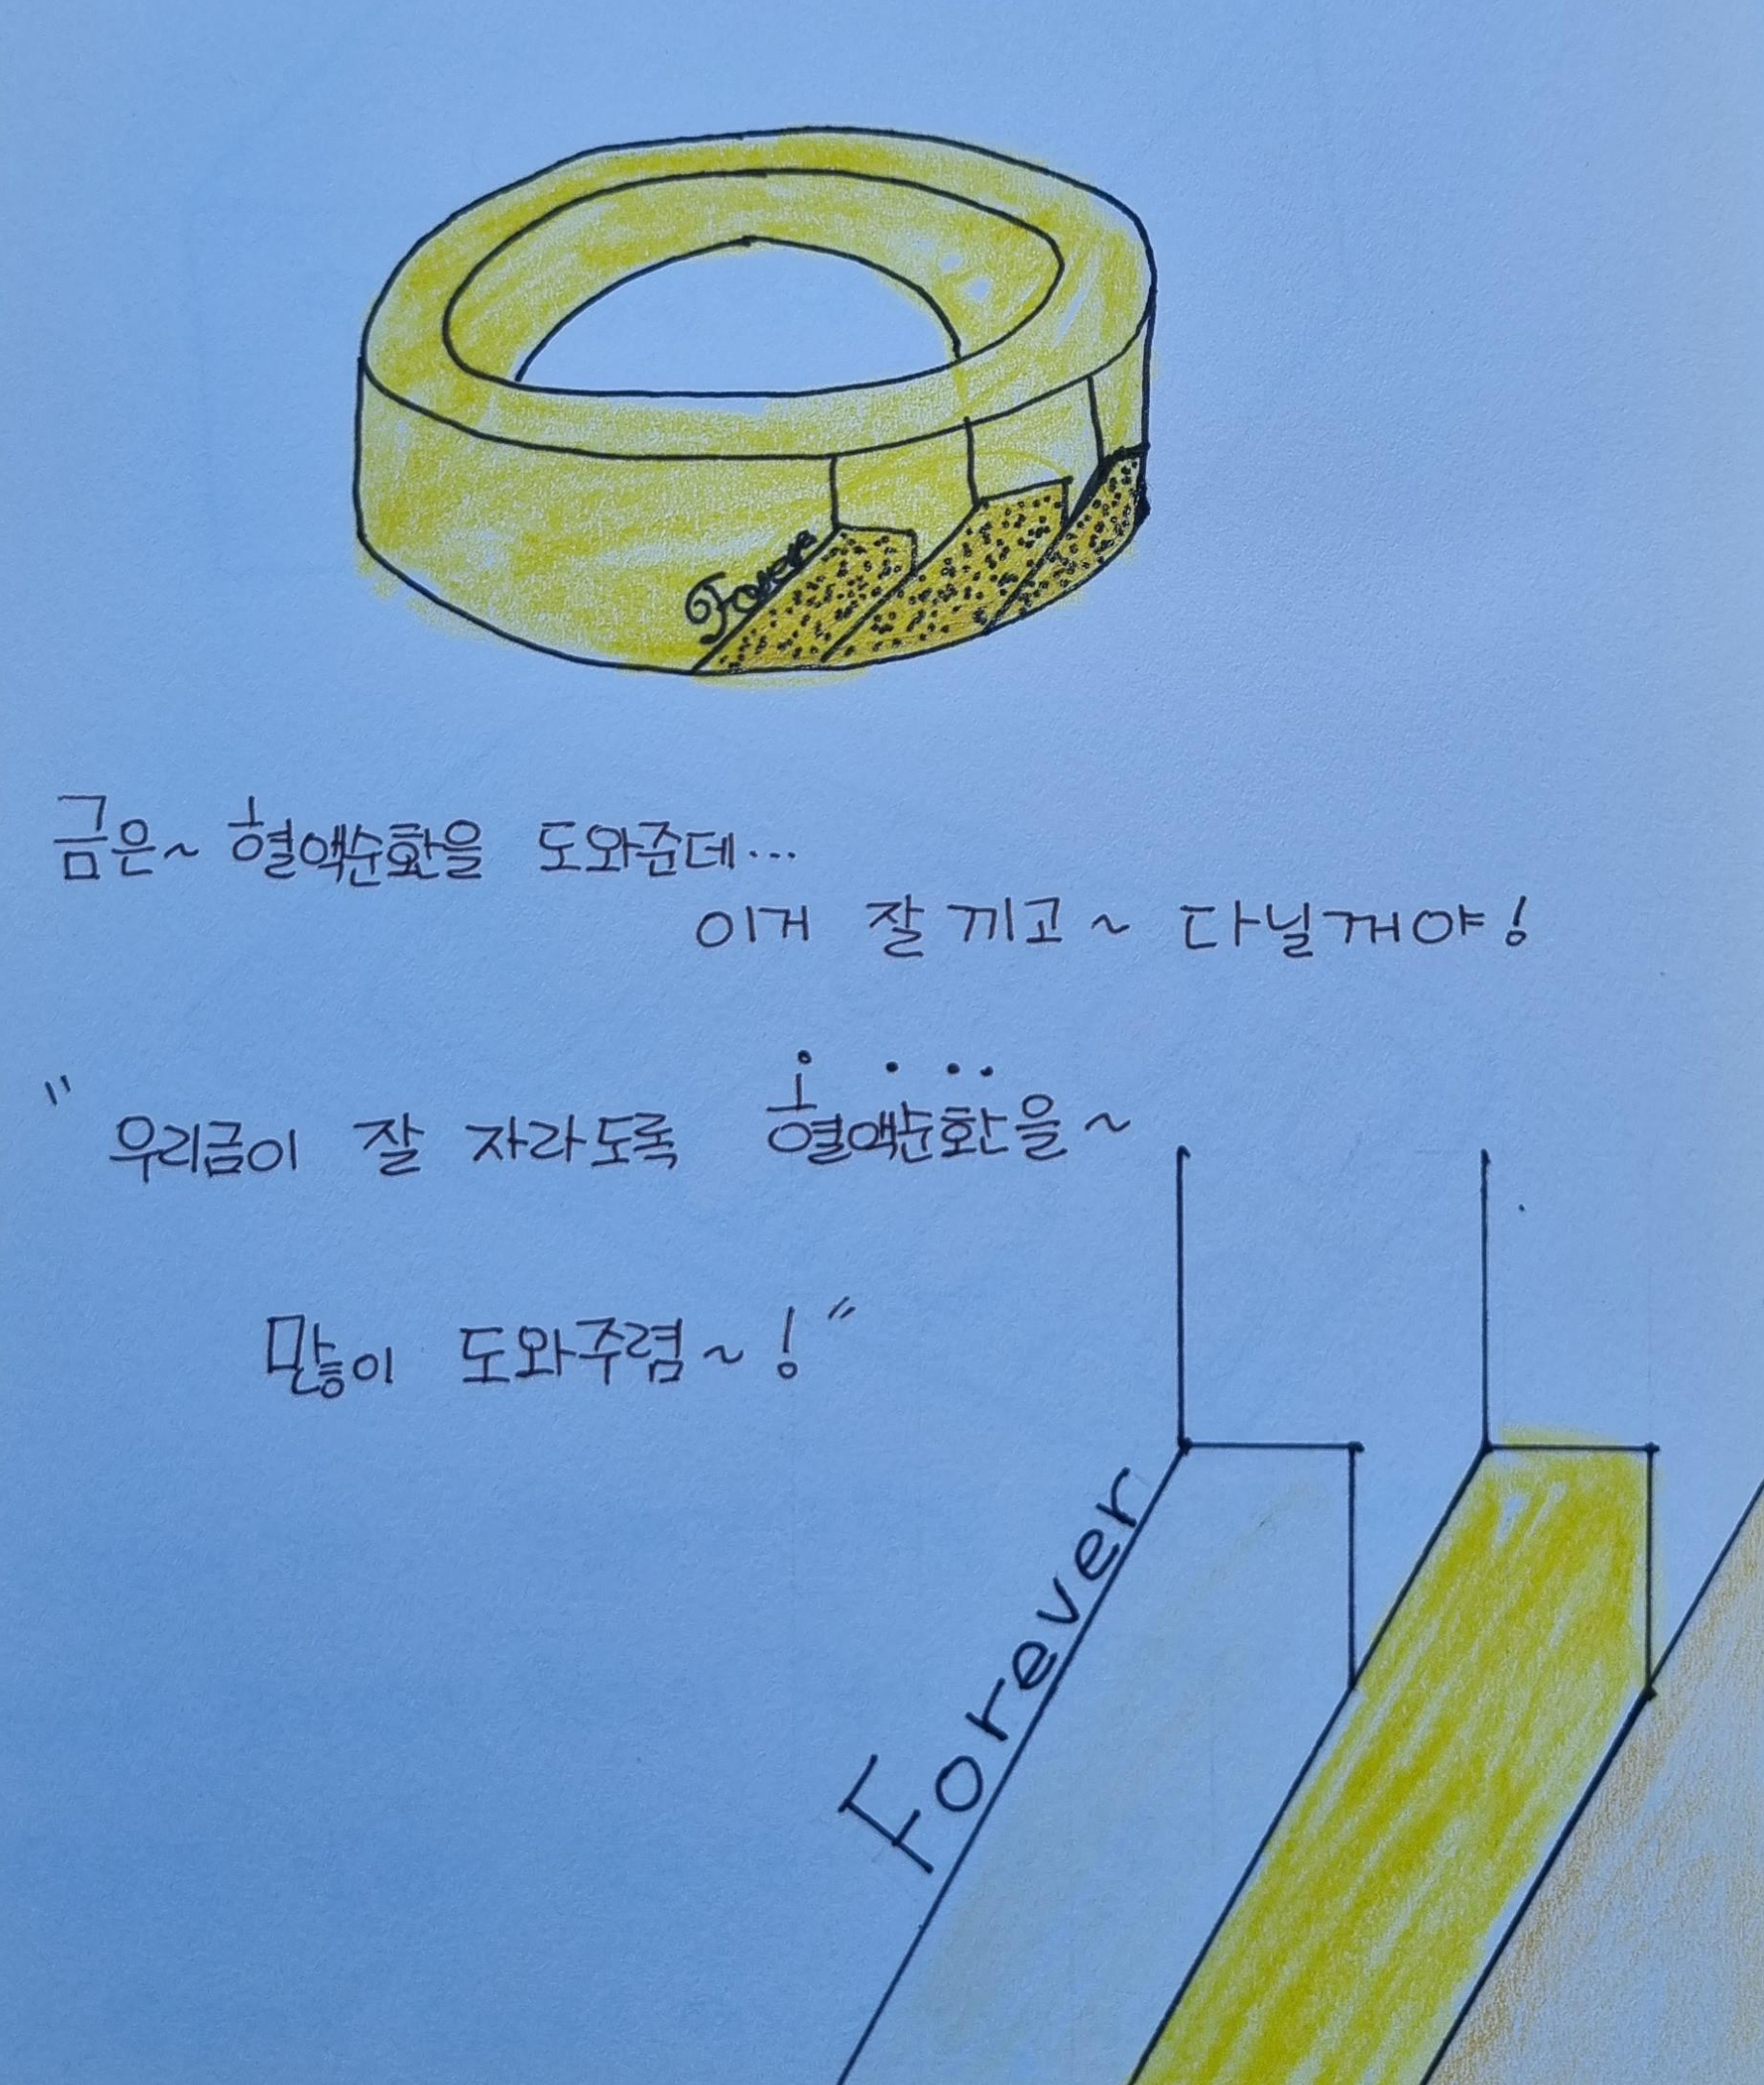 Forever
금은~ 혈액순환을 도와준데...
이거 잘 끼고~ 다닐꺼야!
"우리금이 잘 자라도록 혈액순환을~
많이 도와주렴~!"
Forever